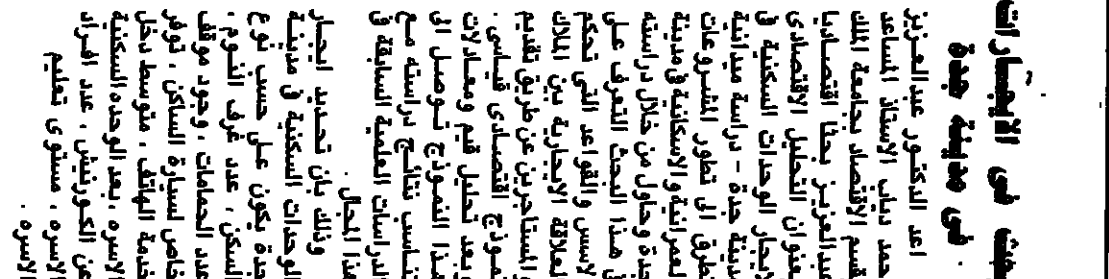 بحث في الايجارات
في مدينة جدة
اعد الدكتور عبدالعزيز
احمد دياب الاستاذ المساعد
بقسم الاقتصاد بجامعة الملك
عبدالعزيز بحثا اقتصاديا
بعنوان التحليل الاقتصادى
لايجار الوحدات السكنية في
مدينة جدة - دراسة ميدانية
تطرق الى تطور المشروعات
العمرانية والاسكانية في مدينة
جدة وحاول من خلال دراسته
في هذا البحث التعرف على
الاسس والقواعد التي تحكم
العلاقة الايجارية بين الملاك
والمستاجرين عن طريق تقديم
نموذج اقتصادى قياسى .
وبعد تحليل قيم ومعادلات
هذا النموذج توصل الى
تناسب نتائج دراسته مع
الدراسات العلمية السابقة في
هذا المجال .
وذلك بان تحديد ايجار
الوحدات السكنية في مدينة
جدة يكون على حسب نوع
السكن ، عدد غرف النوم ،
عدد الحمامات ، وجود موقف
خاص لسيارة الساكن ، توفر
خدمة الهاتف ، متوسط دخل
الاسره ، بعد الوحده السكنية
عن الكورنيش ، عدد افراد
الاسره ، مستوى تعليم
الاسره .